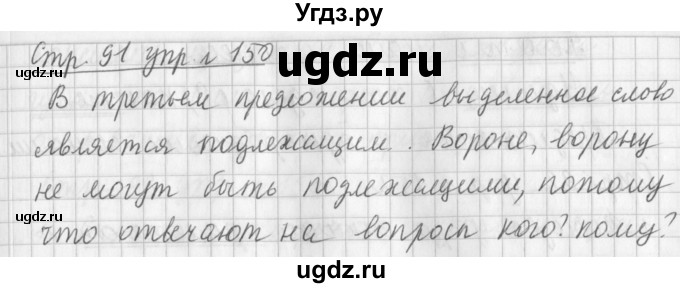 Угдз.ру
Стр. 91 упр. л 150
В третьем предложении выделенное слово
является подлежащим. Вороне, ворону
не могут быть подлежащими, потому
что отвечают на вопросы кого? кому?
ugdz.ru
ugdz.ru
ugdz.ru
ugdz.ru
ugdz.ru